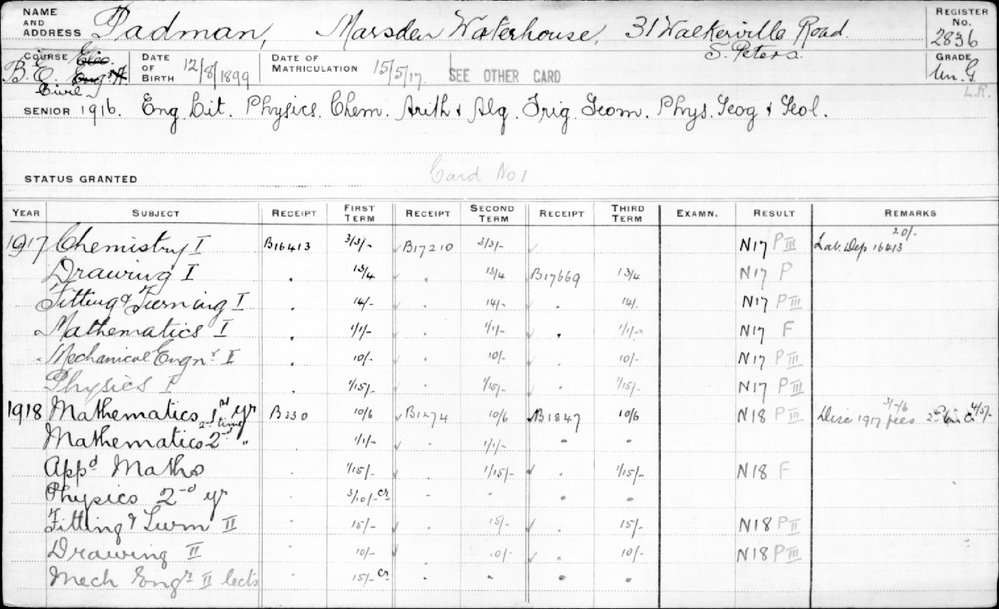 NAME AND ADDRESS Padman, Marsden Waterhouse, 31 Walkerville Road S. Peters. REGISTER No. 2836
COURSE B.E. Civil DATE OF BIRTH 12/8/1899 DATE OF MATRICULATION 15/5/17 SEE OTHER CARD GRADE Un. G L.R.
SENIOR 1916. Eng Lit. Physics. Chem. Arith & Alg. Trig. Geom. Phys. Geog & Geol.
STATUS GRANTED Card No 1
YEAR SUBJECT RECEIPT FIRST TERM RECEIPT SECOND TERM RECEIPT THIRD TERM EXAMN. RESULT REMARKS
1917 Chemistry I B16413 3/3/- B17210 3/3/- N17 P III Lab. Dep 16413 20/-
Drawing I 13/4 13/4 B17669 13/4 N17 P
Fitting & Turning I 14/- 14/- 14/- N17 P III
Mathematics I 1/1/- 1/1/- 1/1/- N17 F
Mechanical Engnr. I 10/- 10/- 10/- N17 P III
Physics I 1/15/- 1/15/- 1/15/- N17 P III
1918 Mathematics 1st yr 2nd time B330 10/6 B1274 10/6 B1847 10/6 N18 P III Disc 1917 fees 3/7/6 4/5/-
Mathematics 2nd " 1/1/- 1/1/-
Appd Maths 1/15/- 1/15/- 1/15/- N18 F
Physics 2nd yr 3/10/- cr
Fitting & Turn II 15/- 15/- 15/- N18 P II
Drawing II 10/- 10/- 10/- N18 P III
Mech Engr II lects 15/- cr